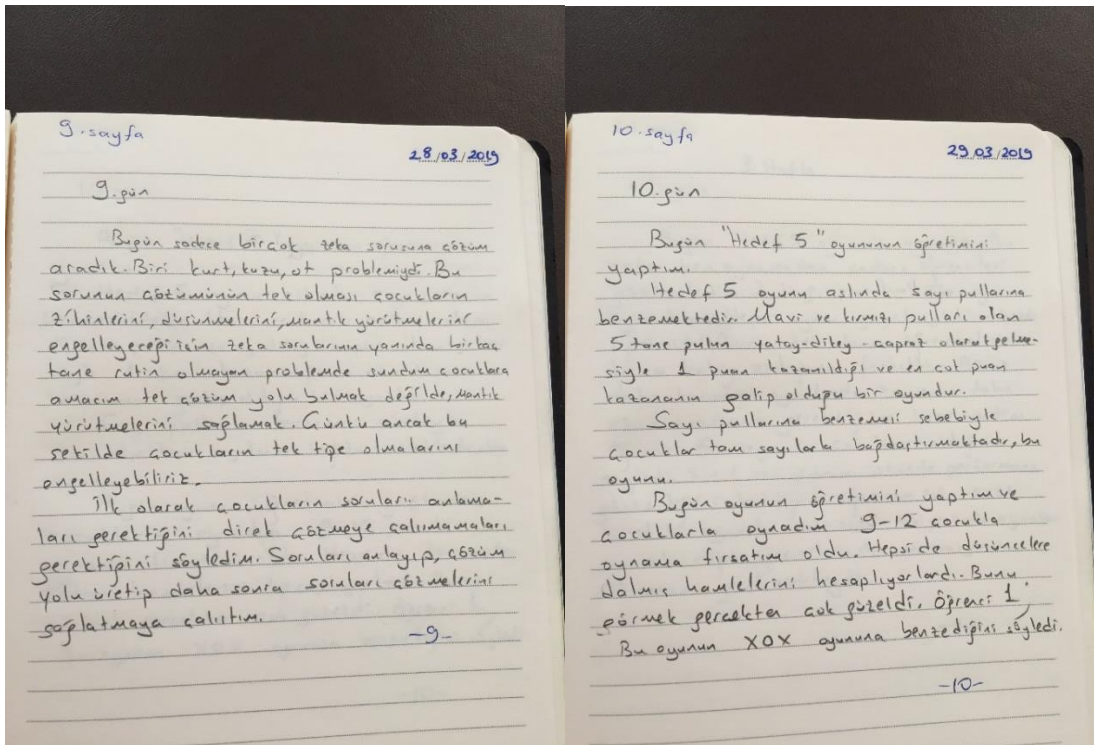 9.sayfa
28/03/2019
9.gün
Bugün sadece birçok zeka sorusuna çözüm
aradık. Biri kurt, kuzu, ot problemiydi. Bu
sorunun çözümünün tek olması çocukların
zihinlerini, düşünmelerini, mantık yürütmelerini
engelleyeceği için zeka sorularının yanında birkaç
tane rutin olmayan problemde sundum çocuklara
amacım tek çözüm yolu bulmak değilde, mantık
yürütmelerini sağlamak. Çünkü ancak bu
şekilde çocukların tek tipe olmalarını
engelleyebiliriz.
İlk olarak çocukların soruları anlama-
ları gerektiğini direk çözmeye çalışmamaları
gerektiğini söyledim. Soruları anlayıp, çözüm
yolu üretip daha sonra soruları çözmelerini
sağlatmaya çalıştım.
-9-
10.sayfa
29.03/2019
10.gün
Bugün "Hedef 5" oyununun öğretimini
yaptım.
Hedef 5 oyunu aslında sayı pullarına
benzemektedir. Mavi ve kırmızı pulları olan
5 tane pulun yatay-dikey-çapraz olarak gelme-
siyle 1 puan kazanıldığı ve en çok puan
kazananın galip olduğu bir oyundur.
Sayı pullarına benzemesi sebebiyle
çocuklar tam sayılarla bağdaştırmaktadır, bu
oyunu.
Bugün oyunun öğretimini yaptım ve
çocuklarla oynadım 9-12 çocukla
oynama fırsatım oldu. Hepside düşüncelere
dalmış hamlelerini hesaplıyorlardı. Bunu
görmek gerçekten çok güzeldi. Öğrenci 1:
Bu oyunun XOX oyununa benzediğini söyledi.
-10-